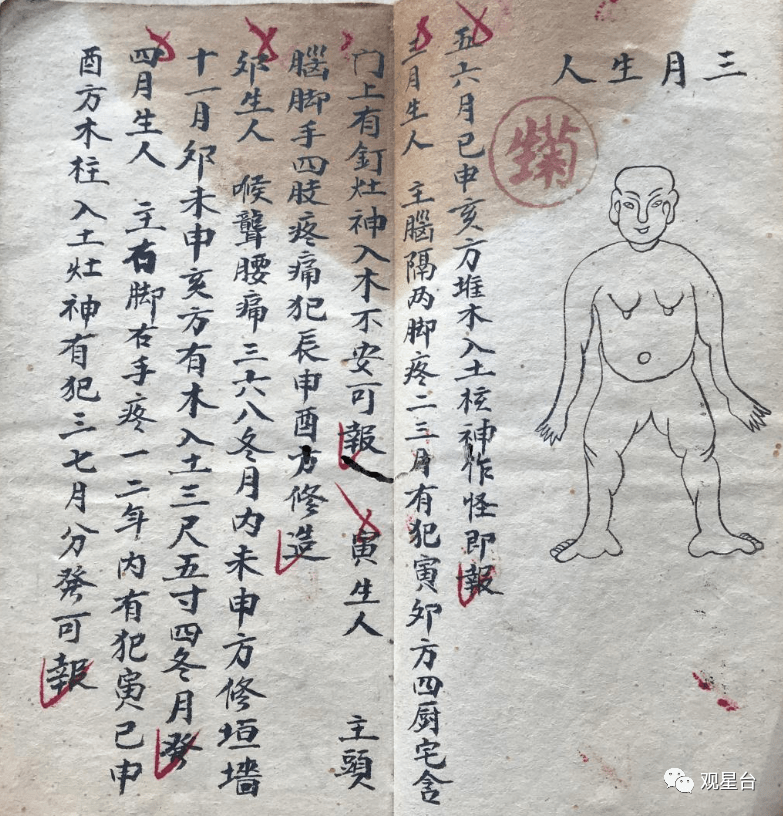 三月生人
五六月已申亥方堆木入土核神作怪即報
二月生人 主腦隔两脚疼二三月有犯寅夘方四厨宅舎
门上有釘灶神入木不安可報 寅生人 主頭
腦脚手四肢疼痛犯辰申酉方修造
夘生人 喉聾腰痛三六八冬月内未申方修垣墻
十一月夘未申亥方有木入土三尺五寸四冬月發
四月生人 主右脚右手疼一二年内有犯寅已申
酉方木柱入土灶神有犯三七月分發可報
观星台